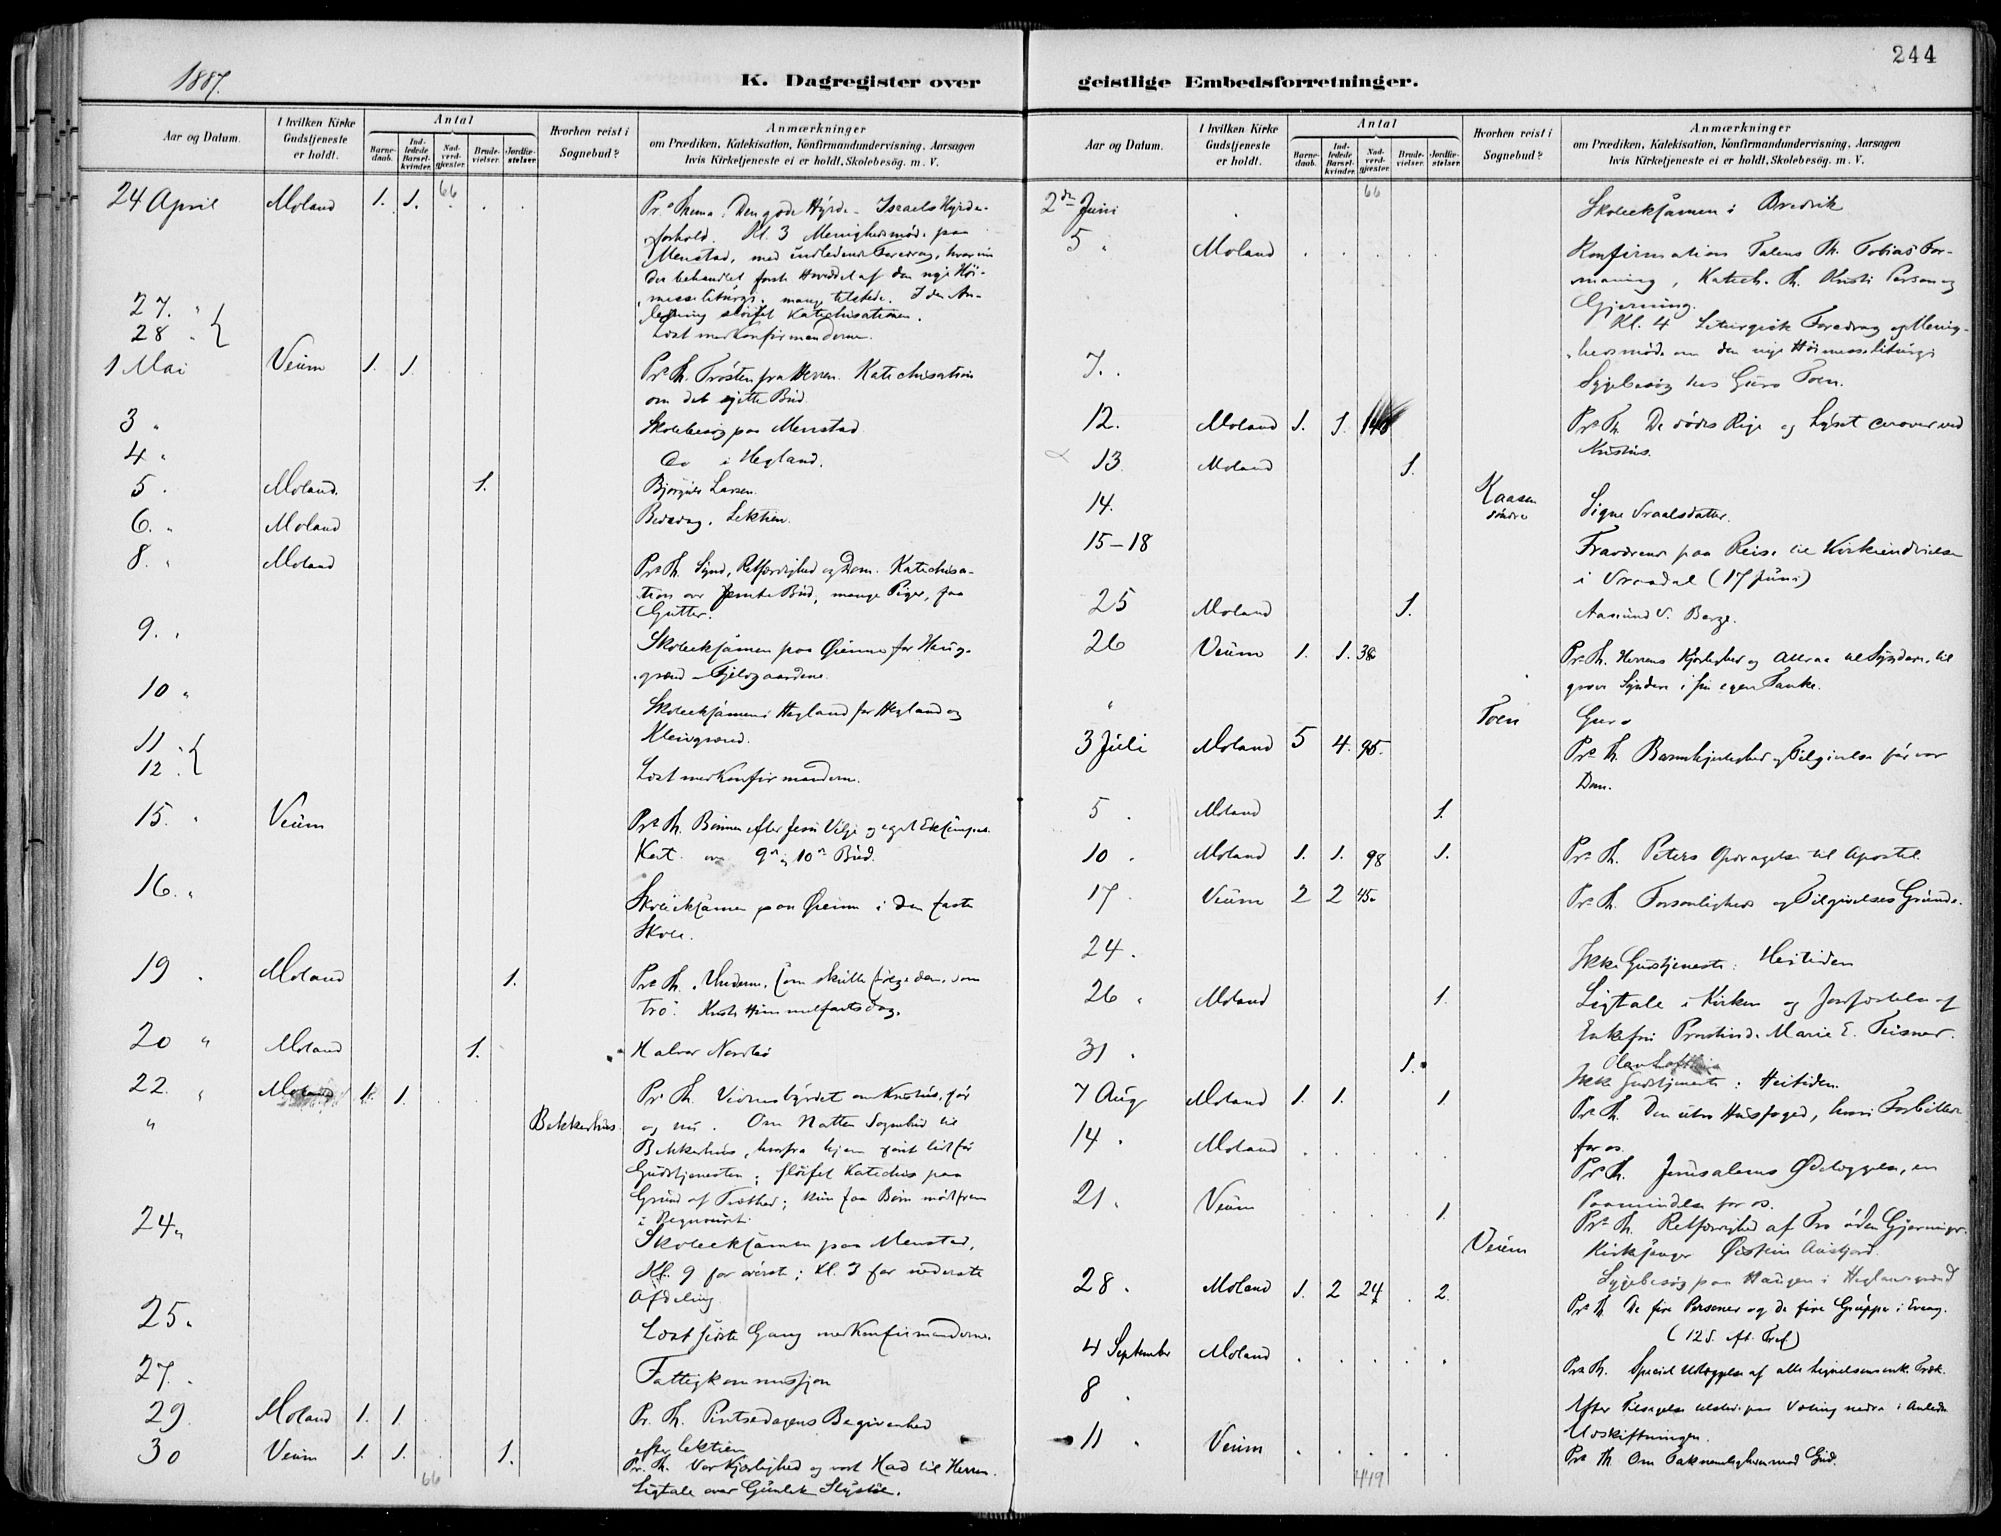 244
1887.
K. Dagregister over geistlige Embedsforretninger.
Aar og Datum.
I hvilken Kirke Gudstjeneste er holdt.
Antal
Barnedaab.
Indledede Barselkvinder.
Nadverdgjæster.
Brudevielser.
Jordfæstelser.
Hvorhen reist i Sognebud?
Anmærkninger
om Prædiken, Katekisation, Konfirmandundervisning, Aarsagen
hvis Kirketjeneste ei er holdt, Skolebesøg. m. V.
66
24 April Moland 1. 1. Pr. Thema: Den gode Hyrde - Israels Hyrde-
forhold. Kl. 3 Menighedsmøde paa
Menstad, med indledende Foredrag, hvori
der behandlet første Hoveddel af den nye Høi-
messeliturgi. mange tilstede. I den An-
27. " ledning sløifet Katechisationen.
28 " Læst med Konfirmanderne.
1 Mai Veum 1. 1. Pr. Th. Trøsten fra Herren. Katechisation
om det sjette Bud.
3 " Skolebesøg paa Menstad.
4 " Do i Hegland.
5 Moland. 1. Bjørgulv Larsen.
6. " Moland Bededag. Lektien.
8. " Moland Pr. Th. Synd, Retfærdighed og Dom. Katechisa-
tion over femte Bud, mange Piger, faa
Gutter.
9. " Skoleeksamen paa Øienne for Haug-
grænd - Fjeldgaardene.
10 " Skoleeksamen i Hegland for Hegland og
Kleivgrænd.
11 "
12 Læst med Konfirmanderne.
15. " Veum Pr. Th. Bønnen efter Jesu Vilje og eget Eksempel.
Kat. over 9de og 10de Bud.
16. " Skoleeksamen paa Øienne i den faste
Skole.
19 Moland 1. Pr. Th. Underne, som skulle følge dem, som
tro. Kristi Himmelfartsdag.
20 " Moland 1. Halvor Nordbø
22. " Moland 1. 1. Pr. Th. Vidnesbyrdet om Kristus, før
" Bekkerhus. og nu. Om Natten Sognebud til
Bekkerhus, hvorfra hjem først lidt før
Gudstjenesten; sløifet Katechis paa
Grund af Træthed; kun faa Børn mødt frem
i Regnveiret.
24 " Skoleeksamen paa Menstad,
Kl. 9 for øverste; Kl. 3 for nederste
Afdeling
25. Læst sidste Gang med Konfirmanderne.
27. Fattigkommission
29. Moland 1. 1. Pr. Th. Pintsedagens Begivenhed
efter lektien
30 Veum 1. 1. 1. Pr. Th. Vor Kjærlighed og vort Had til Herren.
66 Ligtale over Gunlek
Aar og Datum.
I hvilken Kirke Gudstjeneste er holdt.
Antal
Barnedaab.
Indledede Barselkvinder.
Nadverdgjæster.
Brudevielser.
Jordfæstelser.
Hvorhen reist i Sognebud?
Anmærkninger
om Prædiken, Katekisation, Konfirmandundervisning, Aarsagen
hvis Kirketjeneste ei er holdt, Skolebesøg. m. V.
66
2den Juni Skoleeksamen i Bredvik
5 " Moland Konfirmation Talens Th. Tobias' For-
maning, Katech. Th. Kristi Person og
Gjerning.
Kl. 4 Liturgisk Foredrag og Menig-
hedsmøde om den nye Høimesseliturgi
7. Sygebesøg hos Guro Toen.
12. Moland 1. 1. 140 Pr. Th. De dødes Rige og Lyset derover ved
Kristus.
13 Moland 1.
14. Kaasen søndre Signe Vraalsdatter.
15-18 Fraværende paa Reise til Kirkeindvielse
i Vraadal (17 Juni)
25 Moland 1. Aasmund V. Berge.
26 Veum 1. 1. 38 Pr. Th. Herrens Kjærlighed og Attraa til Syndere, til
grove Syndere i sin egen Tanke.
" Toen Guro
3 Juli Moland 5 4. 95. Pr. Th. Barmhjertighed og Tilgivelse før vor
Dom.
5 Moland 1.
10 Moland 1. 1. 98 1. Pr. Th. Peters Opdragelse til Apostel.
17 Veum 2 2 45 Pr. Th. Forsonlighed og Tilgivelses Grunde.
24. Ikke Gudstjeneste: Heitiden
26 " Moland 1. Ligtale i Kirken og Jordfæstelse af
Enkefru Provstinde Marie E. Teisner.
31 1. Olav
Ikke Gudstjeneste: Heitiden.
7 Aug Moland 1. 1. 1 Pr. Th. Den utro Husfoged, hvori Forbillede
for os.
14 Moland Pr. Th. Jerusalems Ødelæggelse, en
Paamindelse for os.
21 Veum 1 Pr. Th. Retfærdighed af Tro uden Gjerninger.
Veum Kirkesanger Øistein
Sygebesøg paa Haugen i Heglandsgrænd
28 Moland 1. 2 24 2. Pr. Th. De fire Personer og de fire Grupper i Evang.
4 September Moland Pr. Th. Speciel Udlæggelse af alle lignelsens enk. Træk.
8 Efter Tilsigelse tilstede paa i Anledn
Udskiftningen.
11 " Veum Pr. Th. Om Taknemligheden mod Gud.
449